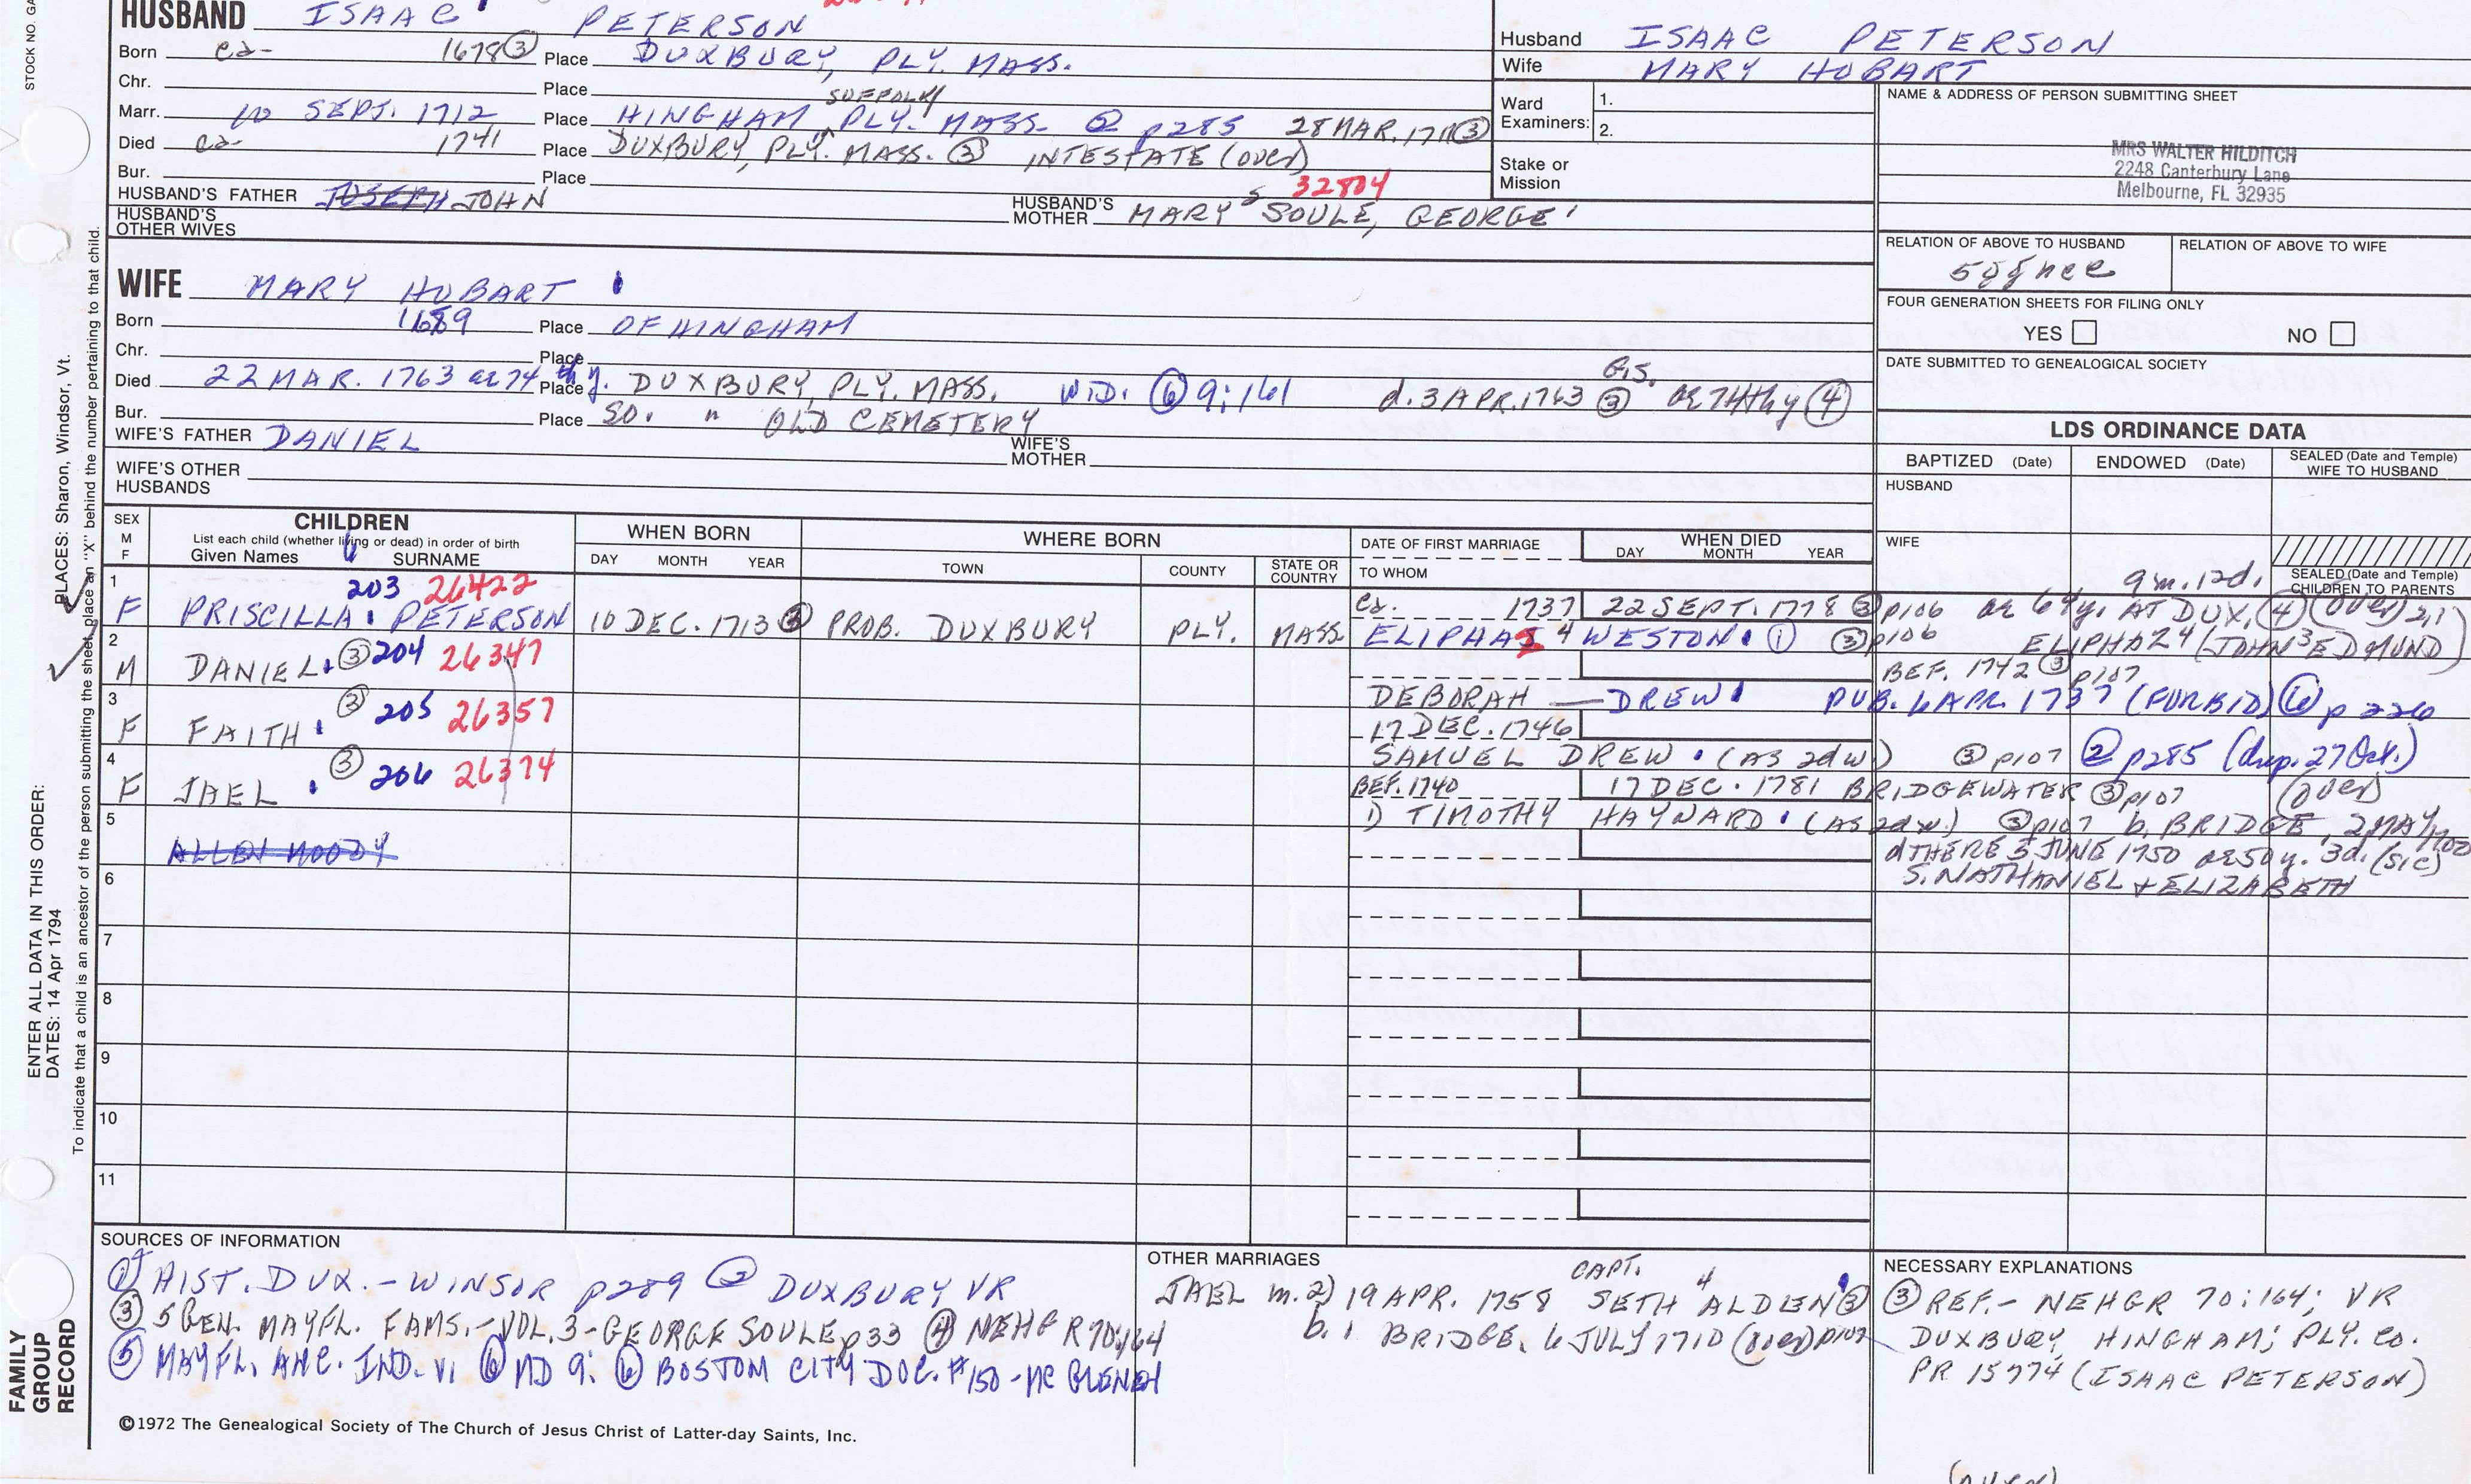 STOCK NO. GA
HUSBAND ISAAC PETERSON
Born ca- 1678 ③ Place DUXBURY, PLY. MASS.
Chr. Place
SUFFOLK
Marr. 10 SEPT. 1712 Place HINGHAM PLY. MASS. ② p285 28 MAR. 1711 ③
Died ca- 1741 Place DUXBURY, PLY. MASS. ③ INTESTATE (over)
Bur. Place
32804
HUSBAND'S FATHER JOSEPH JOHN HUSBAND'S MOTHER MARY SOULE, GEORGE
HUSBAND'S OTHER WIVES
WIFE MARY HOBART
Born 1689 Place OF HINGHAM
Chr. Place
Died 22 MAR. 1763 ae 74 thy. Place DUXBURY, PLY. MASS. WID. ⑥ 9:161 d. 3 APR. 1763 G.S. ③ ae 74thy ④
Bur. Place SO. " OLD CEMETERY
WIFE'S FATHER DANIEL WIFE'S MOTHER
WIFE'S OTHER HUSBANDS
Husband ISAAC PETERSON
Wife MARY HOBART
Ward Examiners: 1.
2.
Stake or Mission
NAME & ADDRESS OF PERSON SUBMITTING SHEET
MRS WALTER HILDITCH
2248 Canterbury Lane
Melbourne, FL 32935
RELATION OF ABOVE TO HUSBAND RELATION OF ABOVE TO WIFE
FOUR GENERATION SHEETS FOR FILING ONLY
YES NO
DATE SUBMITTED TO GENEALOGICAL SOCIETY
LDS ORDINANCE DATA
BAPTIZED (Date) ENDOWED (Date) SEALED (Date and Temple) WIFE TO HUSBAND
HUSBAND
WIFE
SEALED (Date and Temple) CHILDREN TO PARENTS
SEX M F
CHILDREN
List each child (whether living or dead) in order of birth
Given Names SURNAME
WHEN BORN
DAY MONTH YEAR
WHERE BORN
TOWN COUNTY STATE OR COUNTRY
DATE OF FIRST MARRIAGE
TO WHOM
WHEN DIED
DAY MONTH YEAR
9m. 12d.
203 26422
1 F PRISCILLA PETERSON 10 DEC. 1713 ③ PROB. DUXBURY PLY. MASS. ca. 1737 22 SEPT. 1778 ③ p106 ae 64y. AT DUX, ④ (over) 2,1
ELIPHAZ 4 WESTON ① ③ p106 ELIPHAZ 4 (JOHN 3 EDMUND)
2 M DANIEL ③ 204 26347 BEF. 1742 ③ p107
DEBORAH — DREW PUB. 6 APR. 1737 (FORBID) ⑥ p 226
3 F FAITH ③ 205 26357 17 DEC. 1746
SAMUEL DREW (AS 2d w) ③ p107 ② p285 (dup. 27 Oct.)
4 F JAEL ③ 206 26374 BEF. 1740 17 DEC. 1781 BRIDGEWATER ③ p107 (over)
1) TIMOTHY HAYWARD (AS 2d w.) ③ p107 b. BRIDGE, 2 MAY 1700
5 ALLEN MOODY d THERE 5 JUNE 1750 ae 50 y. 3d. (sic)
S. NATHANIEL + ELIZABETH
6
7
8
9
10
11
SOURCES OF INFORMATION
① HIST. DUX. - WINSOR p289 ② DUXBURY VR
③ 5 GEN. MAYFL. FAMS. - VOL. 3 - GEORGE SOULE p33 ④ NEHGR 70:164
⑤ MAYFL. ANC. IND. V1 ⑥ MD 9: ⑥ BOSTON CITY DOC. #150 - MC GLENEN
OTHER MARRIAGES
JAEL m. 2) 19 APR. 1758 CAPT. SETH 4 ALDEN ③
b. BRIDGE. 6 JULY 1710 (over) p107
NECESSARY EXPLANATIONS
③ REF. - NEHGR 70:164; VR
DUXBURY, HINGHAM; PLY. CO.
PR 15774 (ISAAC PETERSON)
(over)
©1972 The Genealogical Society of The Church of Jesus Christ of Latter-day Saints, Inc.
FAMILY GROUP RECORD
ENTER ALL DATA IN THIS ORDER:
DATES: 14 Apr 1794
PLACES: Sharon, Windsor, Vt.
To indicate that a child is an ancestor of the person submitting the sheet, place an "X" behind the number pertaining to that child.